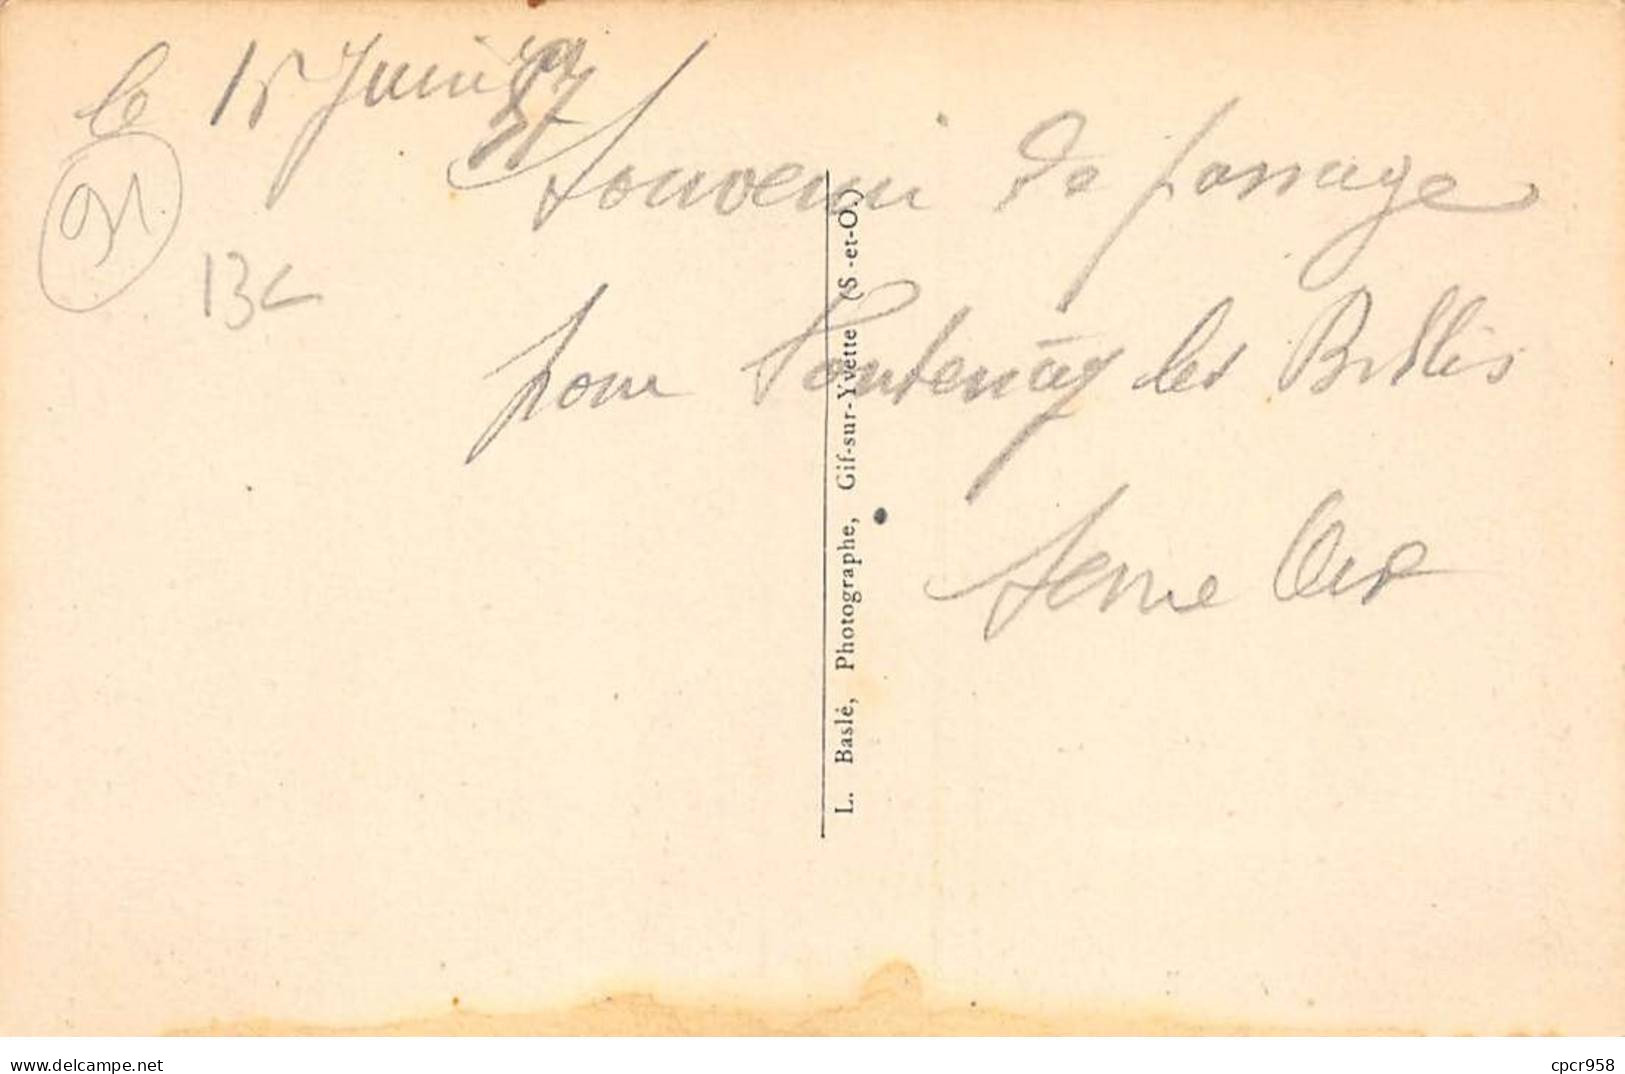 le 15 Juin
Souvenir de passage
91
13c
pour Fontenay les Brillis
Seine Oise
L. Baslé, Photographe, Gif-sur-Yvette (S.-et-O.)
delcampe.net
cpcr958